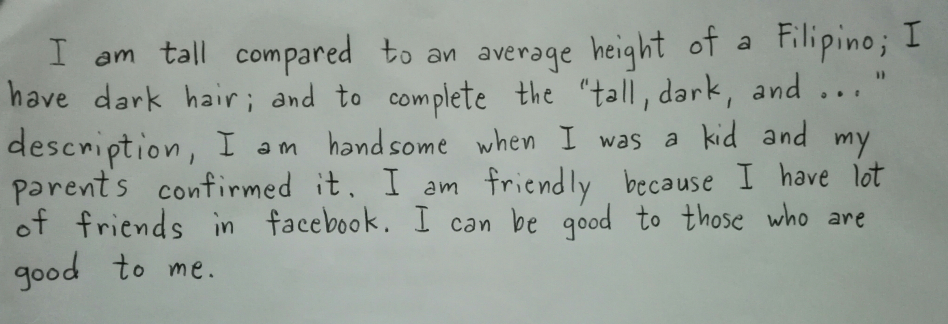 I am tall compared to an average height of a Filipino; I
have dark hair; and to complete the "tall, dark, and ..."
description, I am handsome when I was a kid and my
parents confirmed it. I am friendly because I have lot
of friends in facebook. I can be good to those who are
good to me.